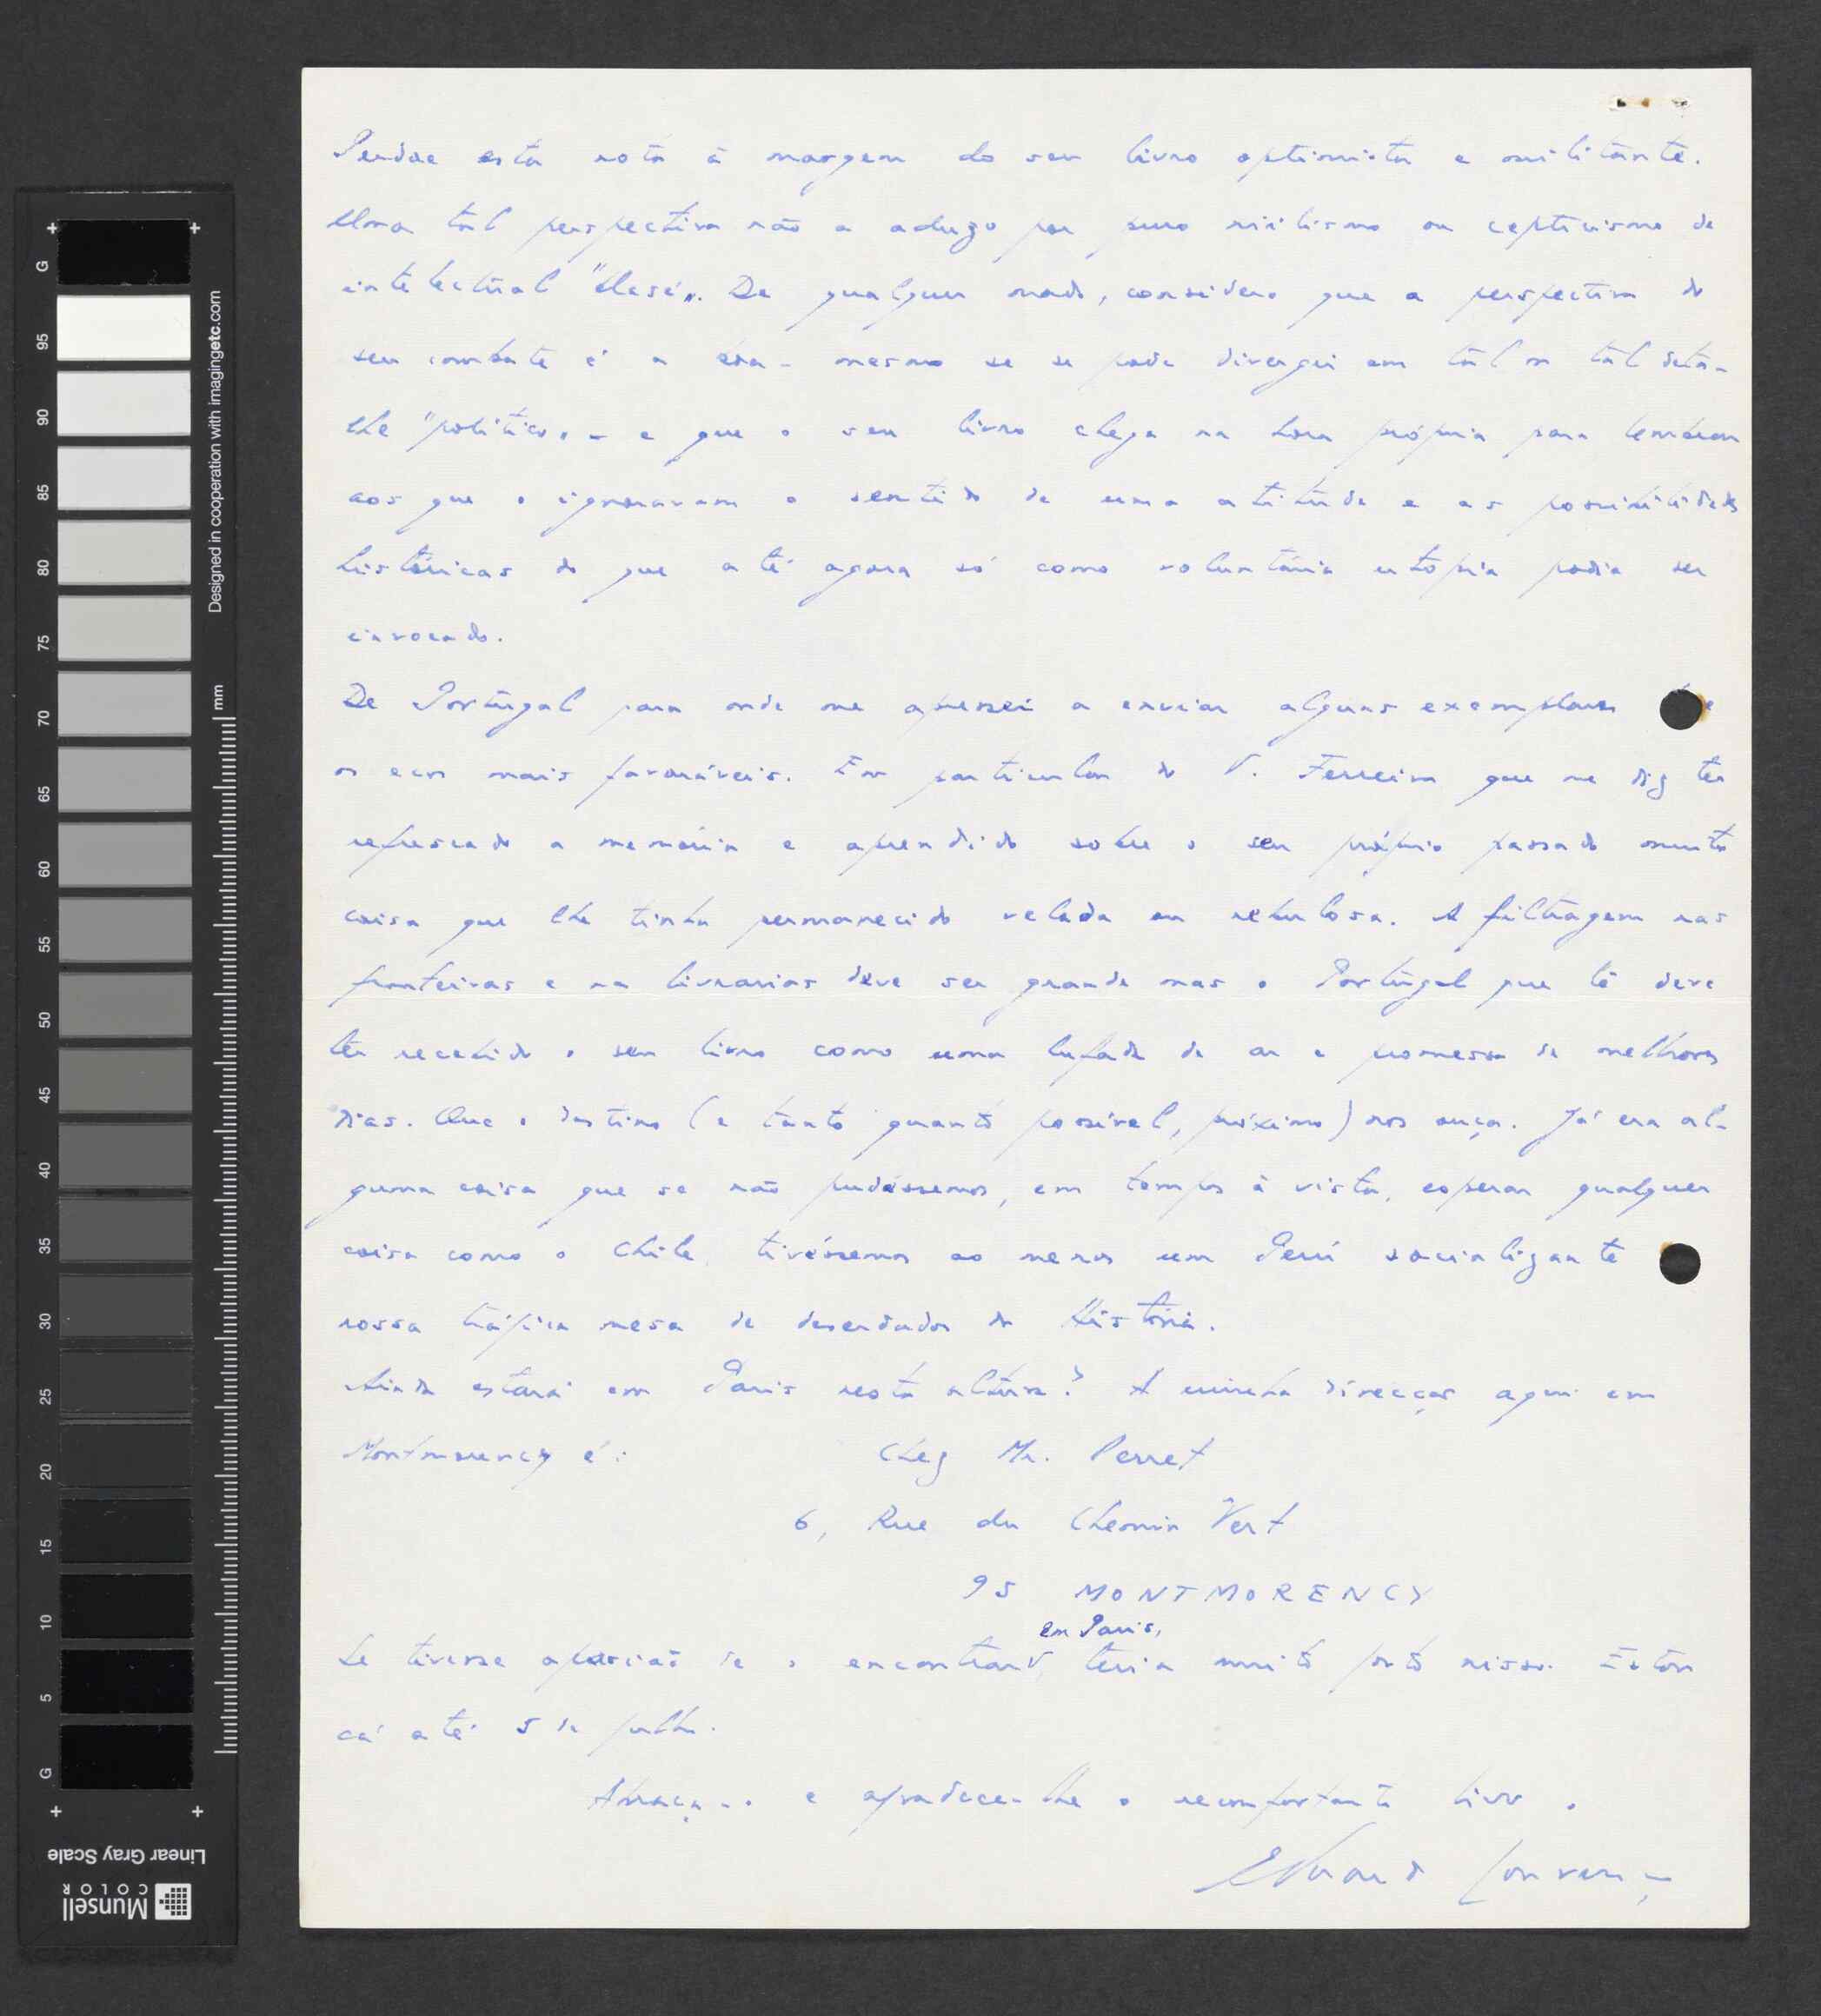 Perdoe esta nota à margem do seu livro optimista e militante.
Uma tal perspectiva não a aduzo por puro niilismo ou cepticismo de
intelectual "blasé". De qualquer modo, considero que a perspectiva do
seu combate é a boa - mesmo se se pode divergir em tal ou tal deta-
lhe "político" - e que o seu livro chega na hora própria para lembrar
aos que o ignoravam o sentido de uma atitude e as possibilidades
históricas do que até agora só como voluntária utopia podia ser
invocado.
De Portugal para onde me apressei a enviar alguns exemplares
os ecos mais favoráveis. Em particular do V. Ferreira que me diz ter
refrescado a memória e aprendido sobre o seu próprio passado muita
coisa que lhe tinha permanecido velada ou nebulosa. A filtragem nas
fronteiras e na livrarias deve ser grande mas o Portugal que lê deve
ter recebido o seu livro como uma lufada de ar e promessa de melhores
dias. Que o destino (e tanto quanto possível, próximo) nos ouça. Já era al-
guma coisa que se não pudéssemos, em tempos à vista, esperar qualquer
coisa como o Chile, tivéssemos ao menos um Perú socializante
nossa trágica mesa de deserdados da História.
Ainda estará em Paris nesta altura? A minha direcção aqui em
Montmorency é: Chez Mr. Perret
6, Rue du Chemin Vert
95 MONTMORENCY
em Paris,
Se tivesse ocasião de o encontrar, teria muito gosto nisso. Estou
cá até 5 de julho.
Abraça-o e agradece-lhe o reconfortante livro o
Eduardo Lourenço
G
95
90
85
80
75
70
65
60
55
50
45
40
35
30
25
20
15
10
5
G
mm
Designed in cooperation with imagingetc.com
Linear Gray Scale
Munsell
COLOR